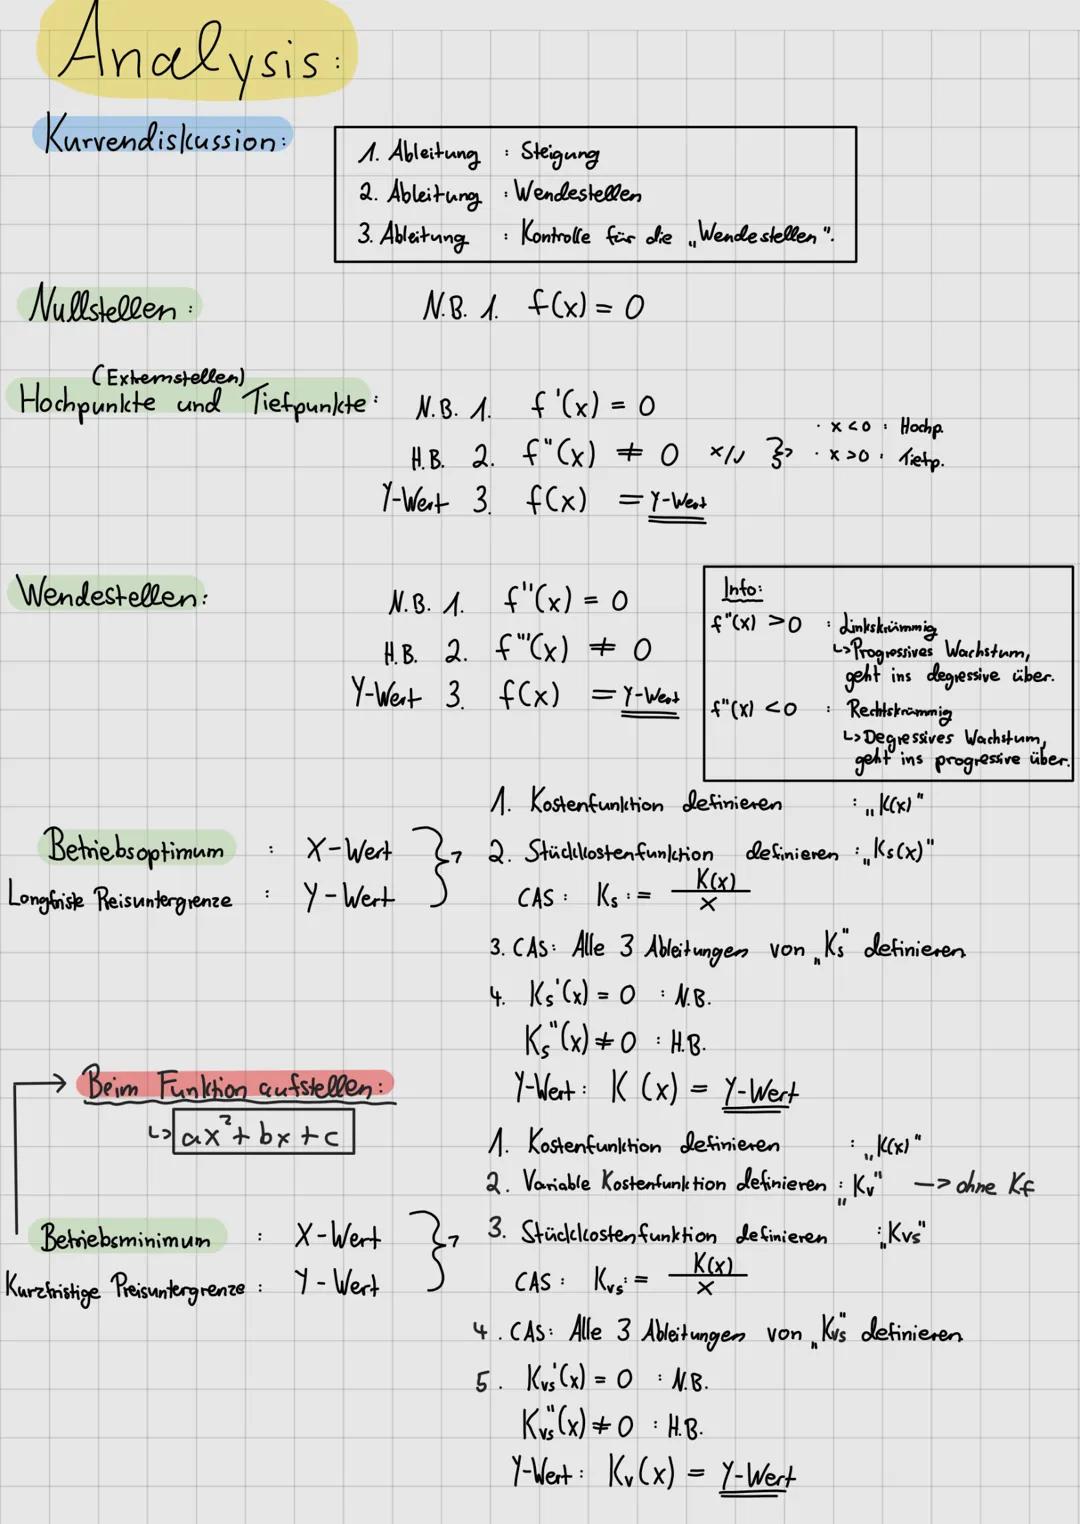 Analysis:
Kurvendiskussion:
1. Ableitung : Steigung
2. Ableitung : Wendestellen
3. Ableitung : Kontrolle für die „Wendestellen".
Nullstellen: N.B. 1. f(x) = 0
(Extremstellen)
Hochpunkte und Tiefpunkte: N.B. 1. f'(x) = 0
H.B. 2. f"(x) ≠ 0 x/✓ }> · x<0 : Hochp.
· x>0 : Tiefp.
Y-Wert 3. f(x) = Y-Wert
Wendestellen: N.B. 1. f"(x) = 0
H.B. 2. f'''(x) ≠ 0
Y-Wert 3. f(x) = Y-Wert
Info:
f"(x) >0 : Linkskrümmig
↳Progressives Wachstum,
geht ins degressive über.
f"(x) <0 : Rechtskrümmig
↳Degressives Wachstum,
geht ins progressive über.
Betriebsoptimum : X-Wert
Longfriste Preisuntergrenze : Y-Wert
1. Kostenfunktion definieren : „K(x)"
2. Stückkostenfunktion definieren : „Ks(x)"
CAS: Ks := K(x)/x
3. CAS: Alle 3 Ableitungen von „Ks" definieren
4. Ks'(x) = 0 : N.B.
Ks"(x) ≠ 0 : H.B.
Y-Wert: K (x) = Y-Wert
→ Beim Funktion aufstellen:
↳ ax²+bx+c
Betriebsminimum : X-Wert
Kurzfristige Preisuntergrenze : Y-Wert
1. Kostenfunktion definieren : „K(x)"
2. Variable Kostenfunktion definieren : „Kv" -> ohne Kf
3. Stückkostenfunktion definieren : „Kvs"
CAS: Kvs := K(x)/x
4. CAS: Alle 3 Ableitungen von „Kvs" definieren
5. Kvs'(x) = 0 : N.B.
Kvs"(x) ≠ 0 : H.B.
Y-Wert: Kv(x) = Y-Wert